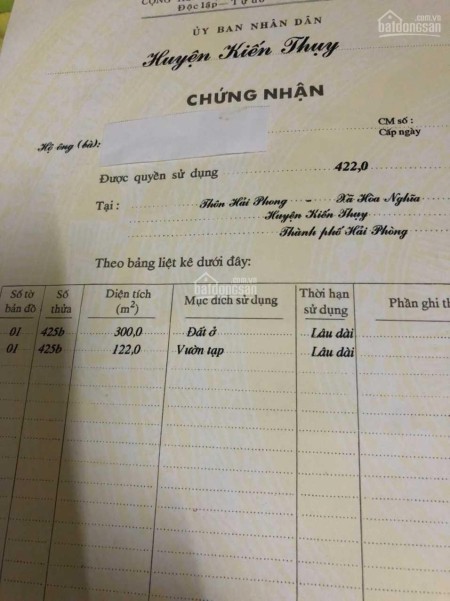 Độc lập - Tự do
ỦY BAN NHÂN DÂN
Huyện Kiến Thụy
CHỨNG NHẬN
CM số :
Cấp ngày
Hộ ông (bà):
Được quyền sử dụng 422,0
Tại : Thôn Hải Phong - Xã Hòa Nghĩa
Huyện Kiến Thụy
Thành phố Hải Phòng
Theo bảng liệt kê dưới đây:
Số tờ bản đồ Số thửa Diện tích (m²) Mục đích sử dụng Thời hạn sử dụng Phần ghi
01 425b 300,0 Đất ở Lâu dài
01 425b 122,0 Vườn tạp Lâu dài
batdongsan
.com.vn
batdongsan
.com.vn